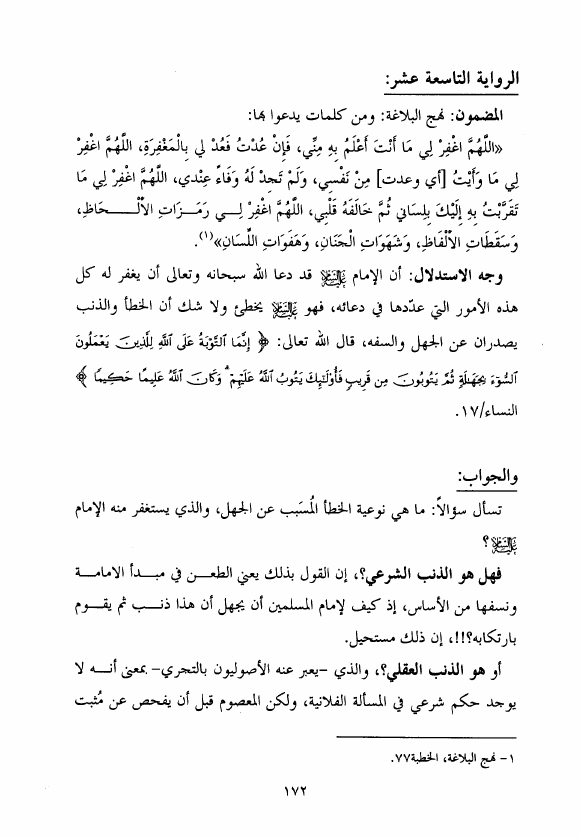 الرواية التاسعة عشر:
المضمون: نهج البلاغة: ومن كلمات يدعوا بها:
«اللَّهُمَّ اغْفِرْ لِي مَا أَنْتَ أَعْلَمُ بِهِ مِنِّي، فَإِنْ عُدْتُ فَعُدْ لِي بِالْمَغْفِرَةِ، اللَّهُمَّ اغْفِرْ
لِي مَا وَأَيْتُ [أي وعدت] مِنْ نَفْسِي، وَلَمْ تَجِدْ لَهُ وَفَاءً عِنْدِي، اللَّهُمَّ اغْفِرْ لِي مَا
تَقَرَّبْتُ بِهِ إِلَيْكَ بِلِسَانِي ثُمَّ خَالَفَهُ قَلْبِي، اللَّهُمَّ اغْفِرْ لِـــي رَمَـزَاتِ الأَلْـــحَاظِ،
وَسَقَطَاتِ الأَلْفَاظِ، وَشَهَوَاتِ الْجَنَانِ، وَهَفَوَاتِ اللِّسَانِ»(١).
وجه الاستدلال: أن الإمام عليه السلام قد دعا الله سبحانه وتعالى أن يغفر له كل
هذه الأمور التي عدّدها في دعائه، فهو عليه السلام يخطئ ولا شك أن الخطأ والذنب
يصدران عن الجهل والسفه، قال الله تعالى: ﴿ إِنَّمَا التَّوْبَةُ عَلَى اللَّهِ لِلَّذِينَ يَعْمَلُونَ
السُّوءَ بِجَهَالَةٍ ثُمَّ يَتُوبُونَ مِن قَرِيبٍ فَأُولَٰئِكَ يَتُوبُ اللَّهُ عَلَيْهِمْ ۗ وَكَانَ اللَّهُ عَلِيمًا حَكِيمًا ﴾
النساء/١٧.
والجواب:
تسأل سؤالاً: ما هي نوعية الخطأ المُسَبب عن الجهل، والذي يستغفر منه الإمام
عليه السلام ؟
فهل هو الذنب الشرعي؟، إن القول بذلك يعني الطعـــن في مبـــدأ الامامـــة
ونسفها من الأساس، إذ كيف لإمام المسلمين أن يجهل أن هذا ذنـــب ثم يقـــوم
بارتكابه؟!!، إن ذلك مستحيل.
أو هو الذنب العقلي؟، والذي -يعبر عنه الأصوليون بالتجري- بمعنى أنـــه لا
يوجد حكم شرعي في المسألة الفلانية، ولكن المعصوم قبل أن يفحص عن مُثبت
١- نهج البلاغة، الخطبة٧٧.
١٧٢